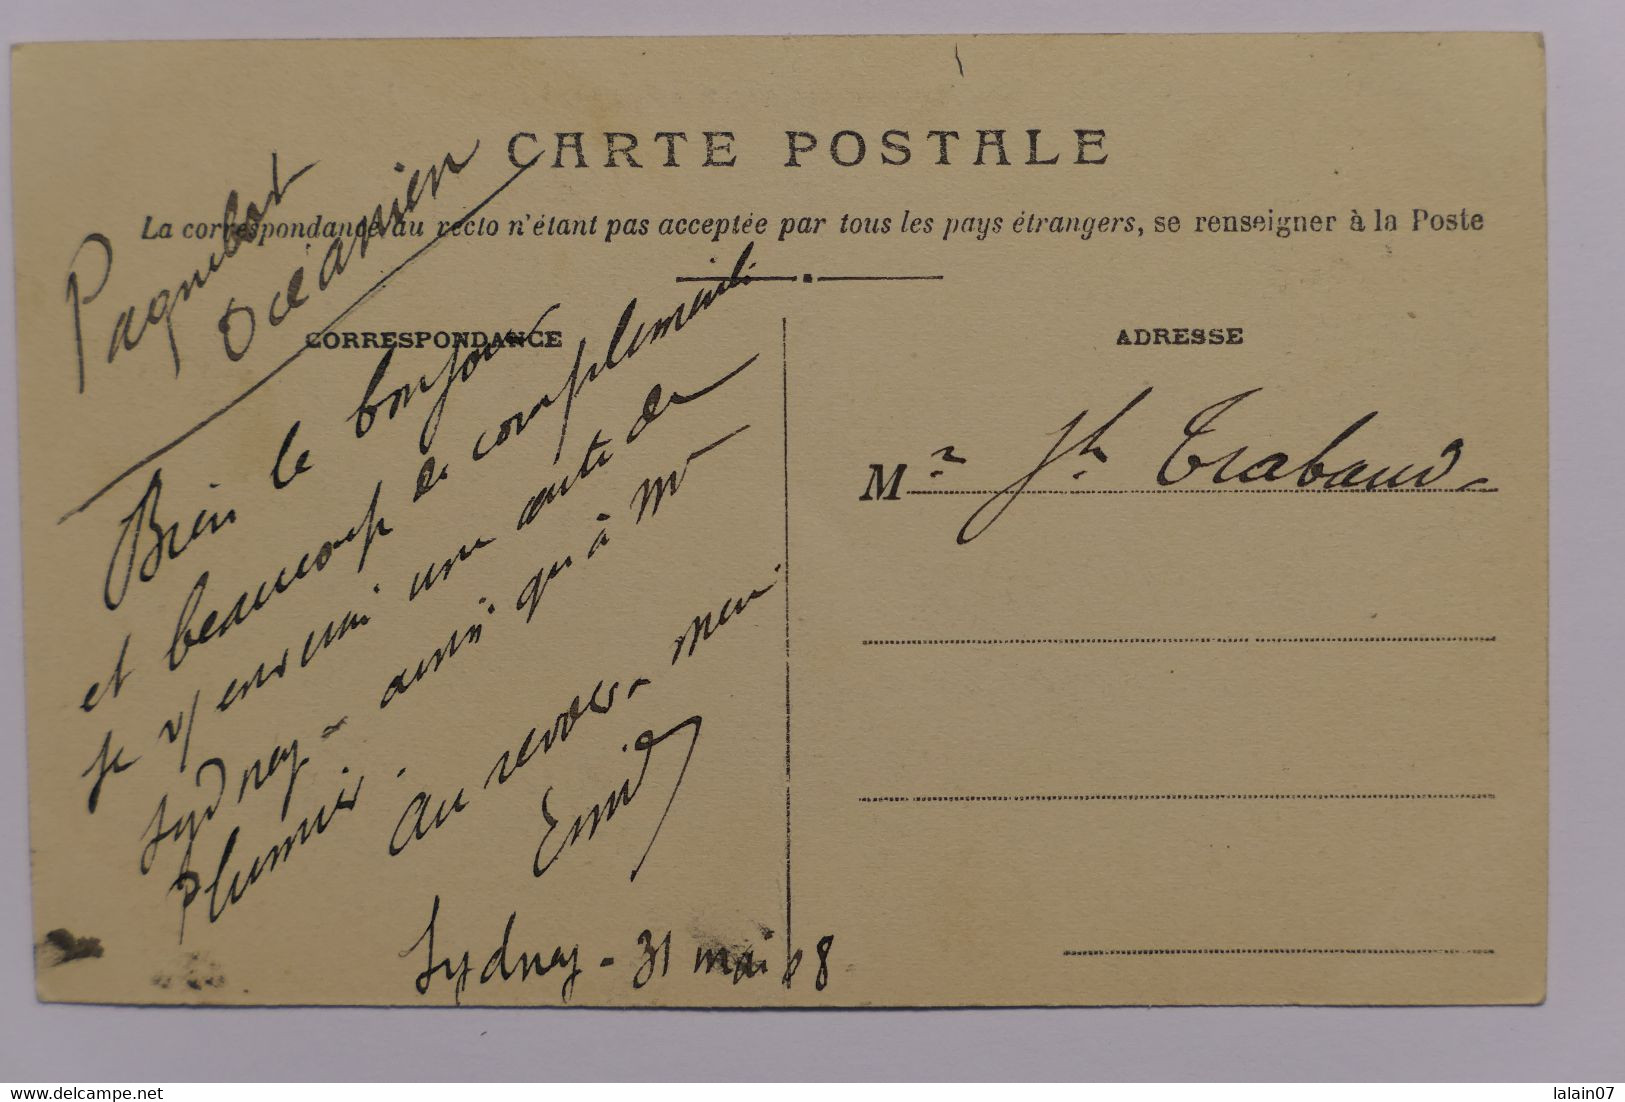 CARTE POSTALE
La correspondance au recto n'étant pas acceptée par tous les pays étrangers, se renseigner à la Poste
CORRESPONDANCE
Paquebot
Océanien
Bien le bonjour
et beaucoup de compliments
je v/ enverrai une carte de
Sydney - ainsi qu'à Mr
Plumier.
Au revoir -
Emile
Sydney - 31 mai 08
ADRESSE
Mr Jh Trabaud
delcampe.net
lalain07